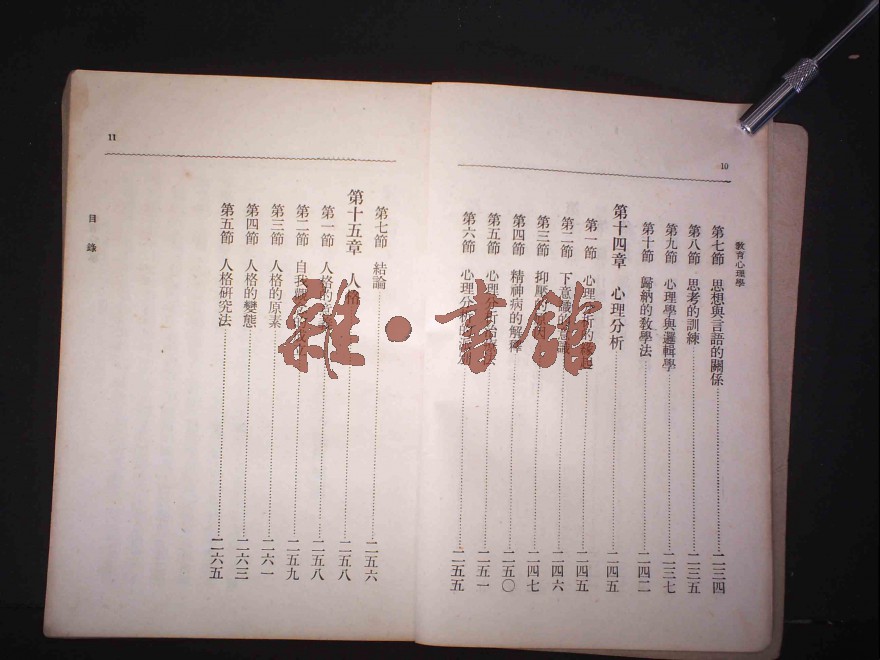 10
教育心理學
第七節 思想與言語的關係 二三四
第八節 思考的訓練 二三五
第九節 心理學與邏輯學 二三七
第十節 歸納的教學法 二四二
第十四章 心理分析 二四五
第一節 心理分析的 二四五
第二節 下意識的 二四六
第三節 抑壓的 二四七
第四節 精神病的解釋 二五〇
第五節 心理分析 二五一
第六節 心理分析 二五五
11
第七節 結論 二五六
第十五章 人格 二五八
第一節 人格的 二五八
第二節 自我 二五九
第三節 人格的原素 二六一
第四節 人格的變態 二六三
第五節 人格研究法 二六五
目錄
雜·書館